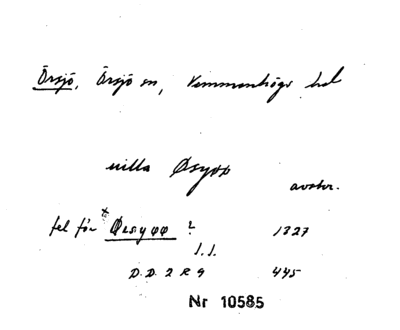 Örsjö, Örsjö sn, Vemmenhögs hd
villa Øsyøø
avskr.
fel för * Øesyøø ? 1327
D.D. 2 R 9 445
Nr 10585